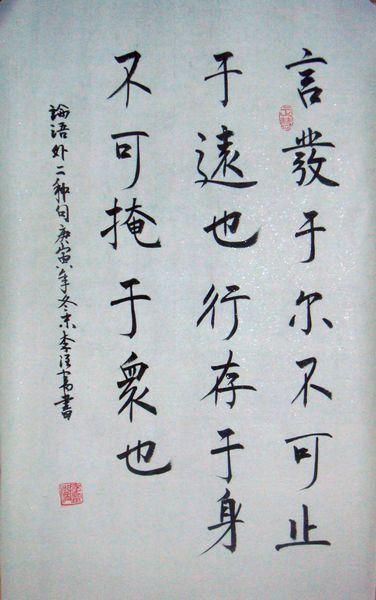 言發于尔不可止
于遠也行存于身
不可掩于衆也
論语外二种句庚寅年冬末李書